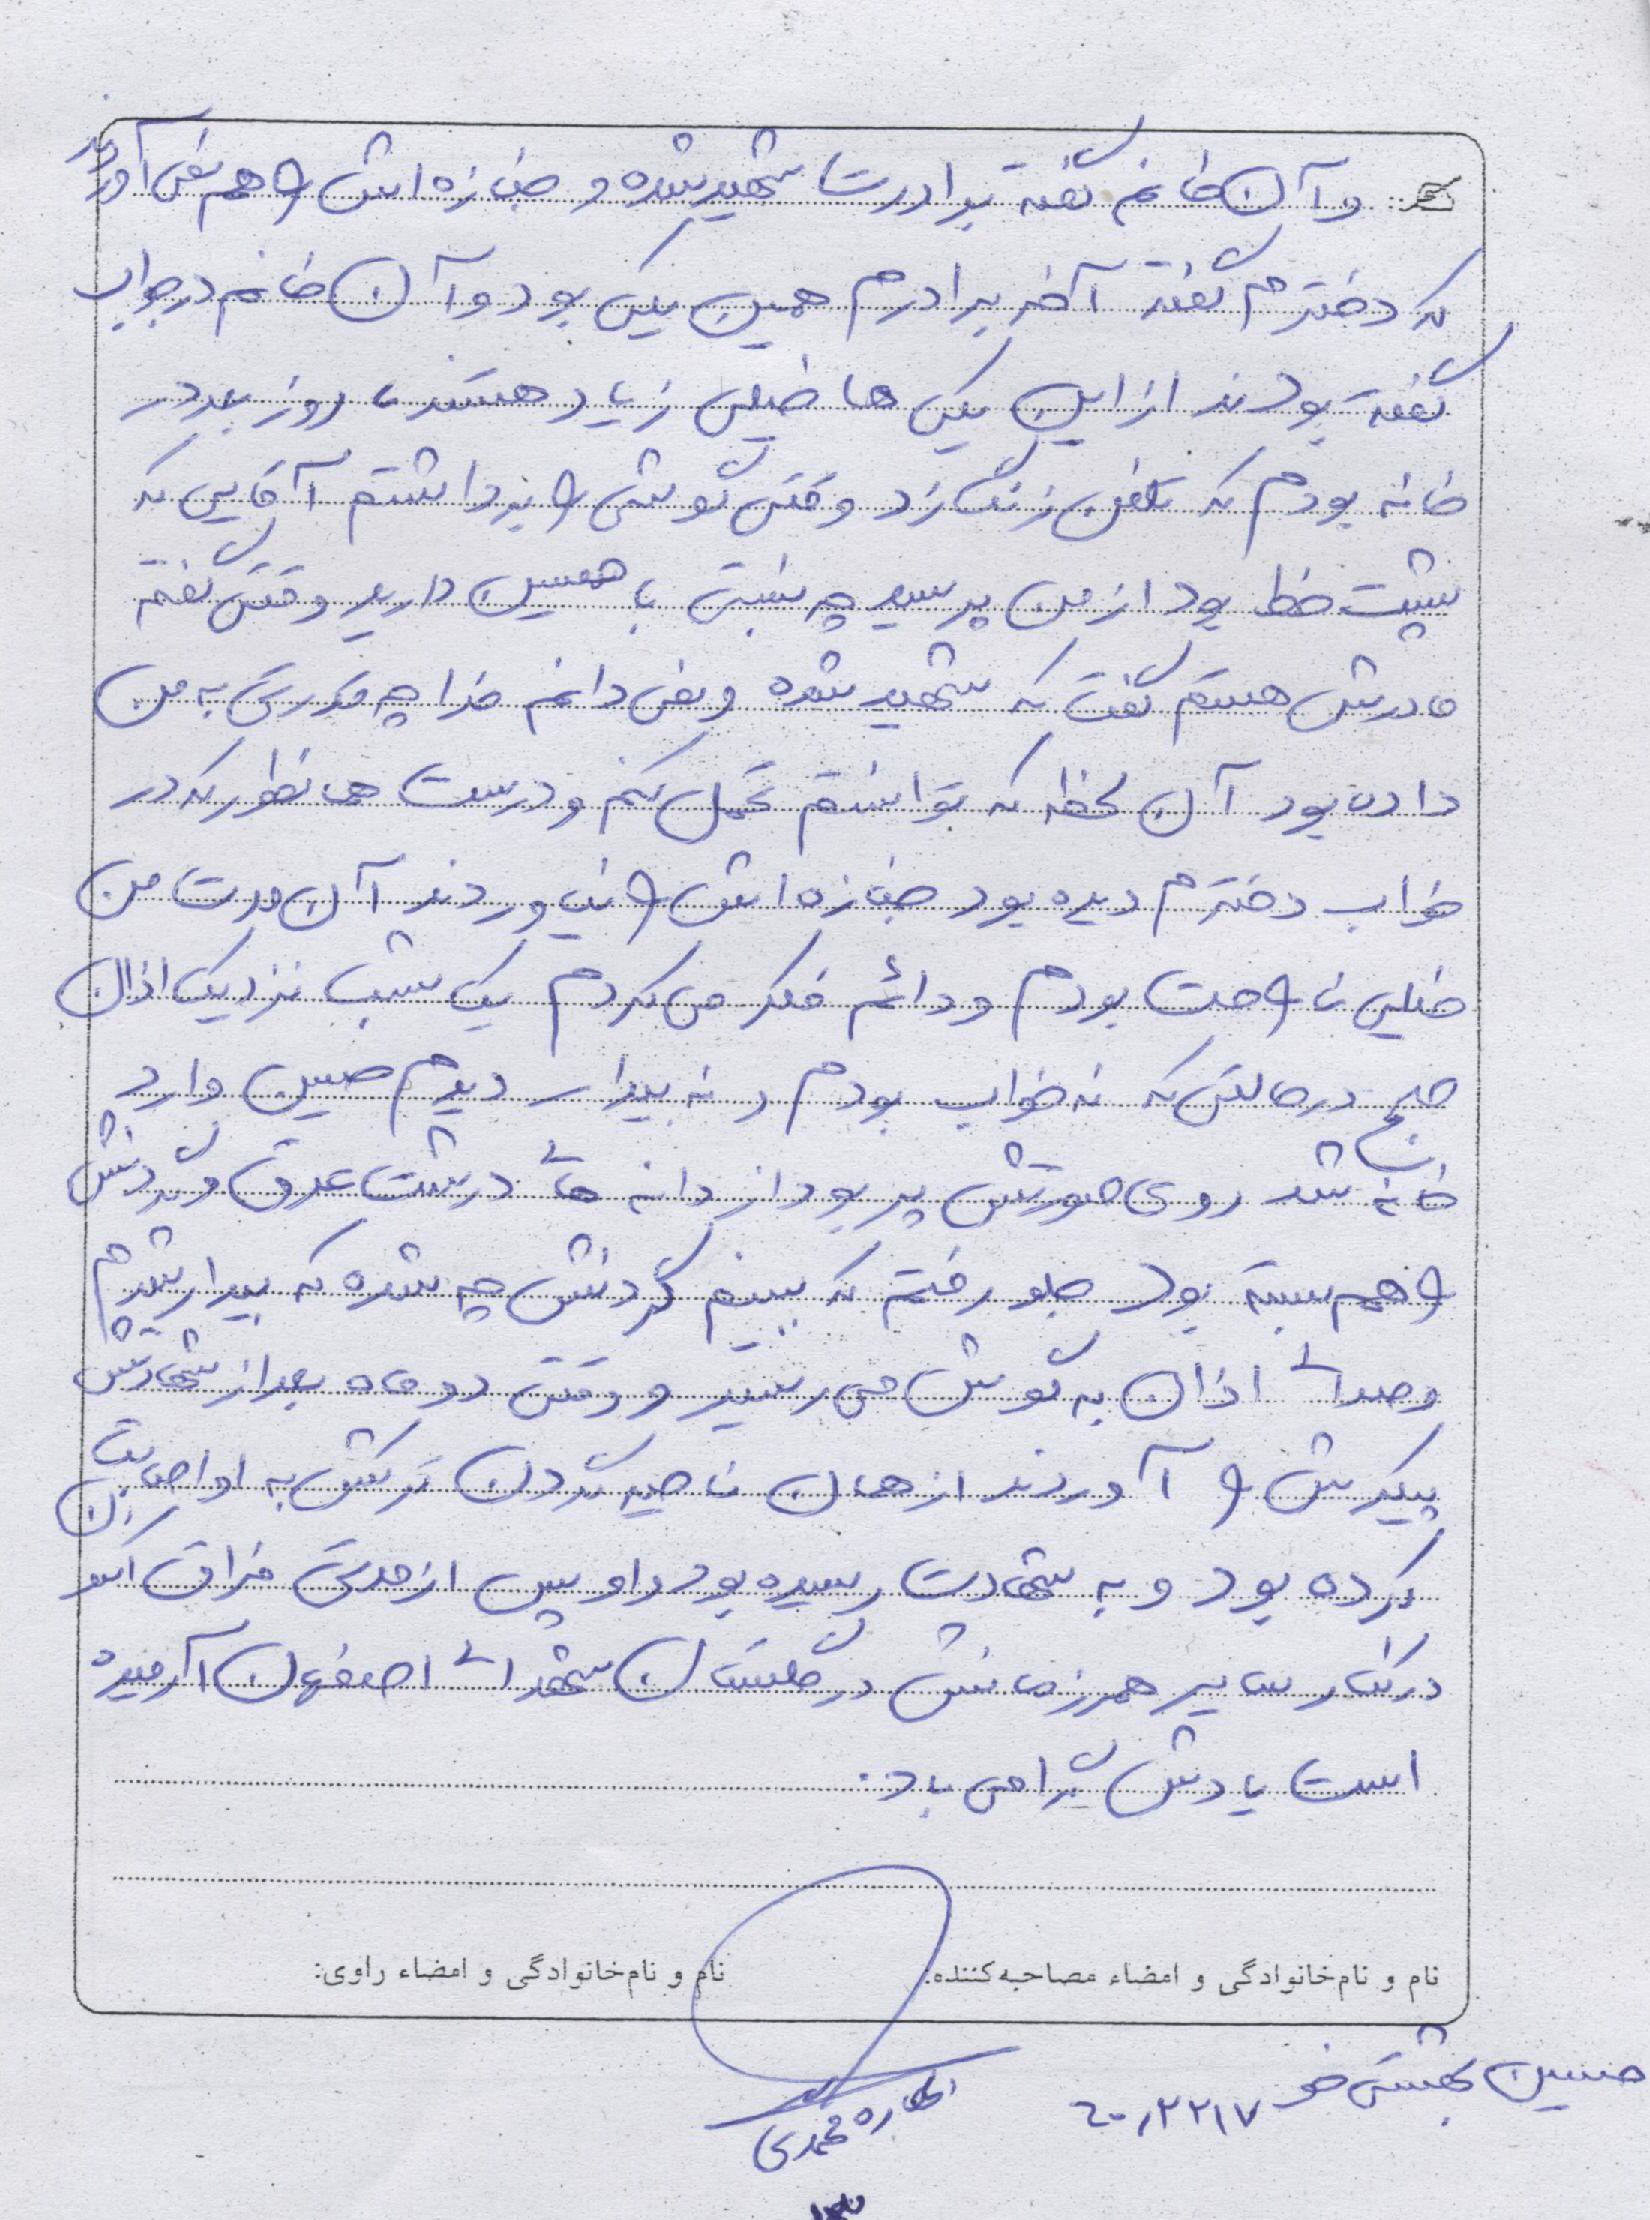 و آن خانم گفته برادرت شهید شده و جنازه اش را هم نمی آورند
که دخترم گفته آخر برادرم همین یکی بود و آن خانم در جواب
گفته بودند از این یکی ها خیلی زیاد هستند، روز بعد در
خانه بودم که تلفن زنگ زد وقتی گوشی را برداشتم آقایی که
پشت خط بود از من پرسید چه نسبتی با حسین دارید وقتی گفتم
مادرش هستم گفت که شهید شده و نمی دانم خدا چه قدرتی به من
داده بود آن لحظه که توانستم تحمل کنم و درست همانطور که در
خواب دخترم دیده بود جنازه اش را نیاوردند آن مدت من
خیلی ناراحت بودم و دائم فکر می کردم یک شب نزدیک اذان
صبح در حالتی که نه خواب بودم و نه بیدار دیدم حسین وارد
خانه شد روی صورتش پر بود از دانه های درشت عرق و گردنش
را هم بسته بود جلو رفتم که ببینم گردنش چه شده که بیدار شدم
و صدای اذان به گوش می رسید و وقتی دو ماه بعد از شهادتش
پیکرش را آوردند از همان ناحیه گردن ترکش به او اصابت
کرده بود و به شهادت رسیده بود و او پس از مدتی فراق اکنون
در کنار سایر همرزمانش در گلستان شهدای اصفهان آرمیده
است یادش گرامی باد.
نام و نام‌خانوادگی و امضاء مصاحبه‌کننده: نام و نام‌خانوادگی و امضاء راوی:
حسین بهشتی خو ۶۰۰۲۲۱۷
محمدی